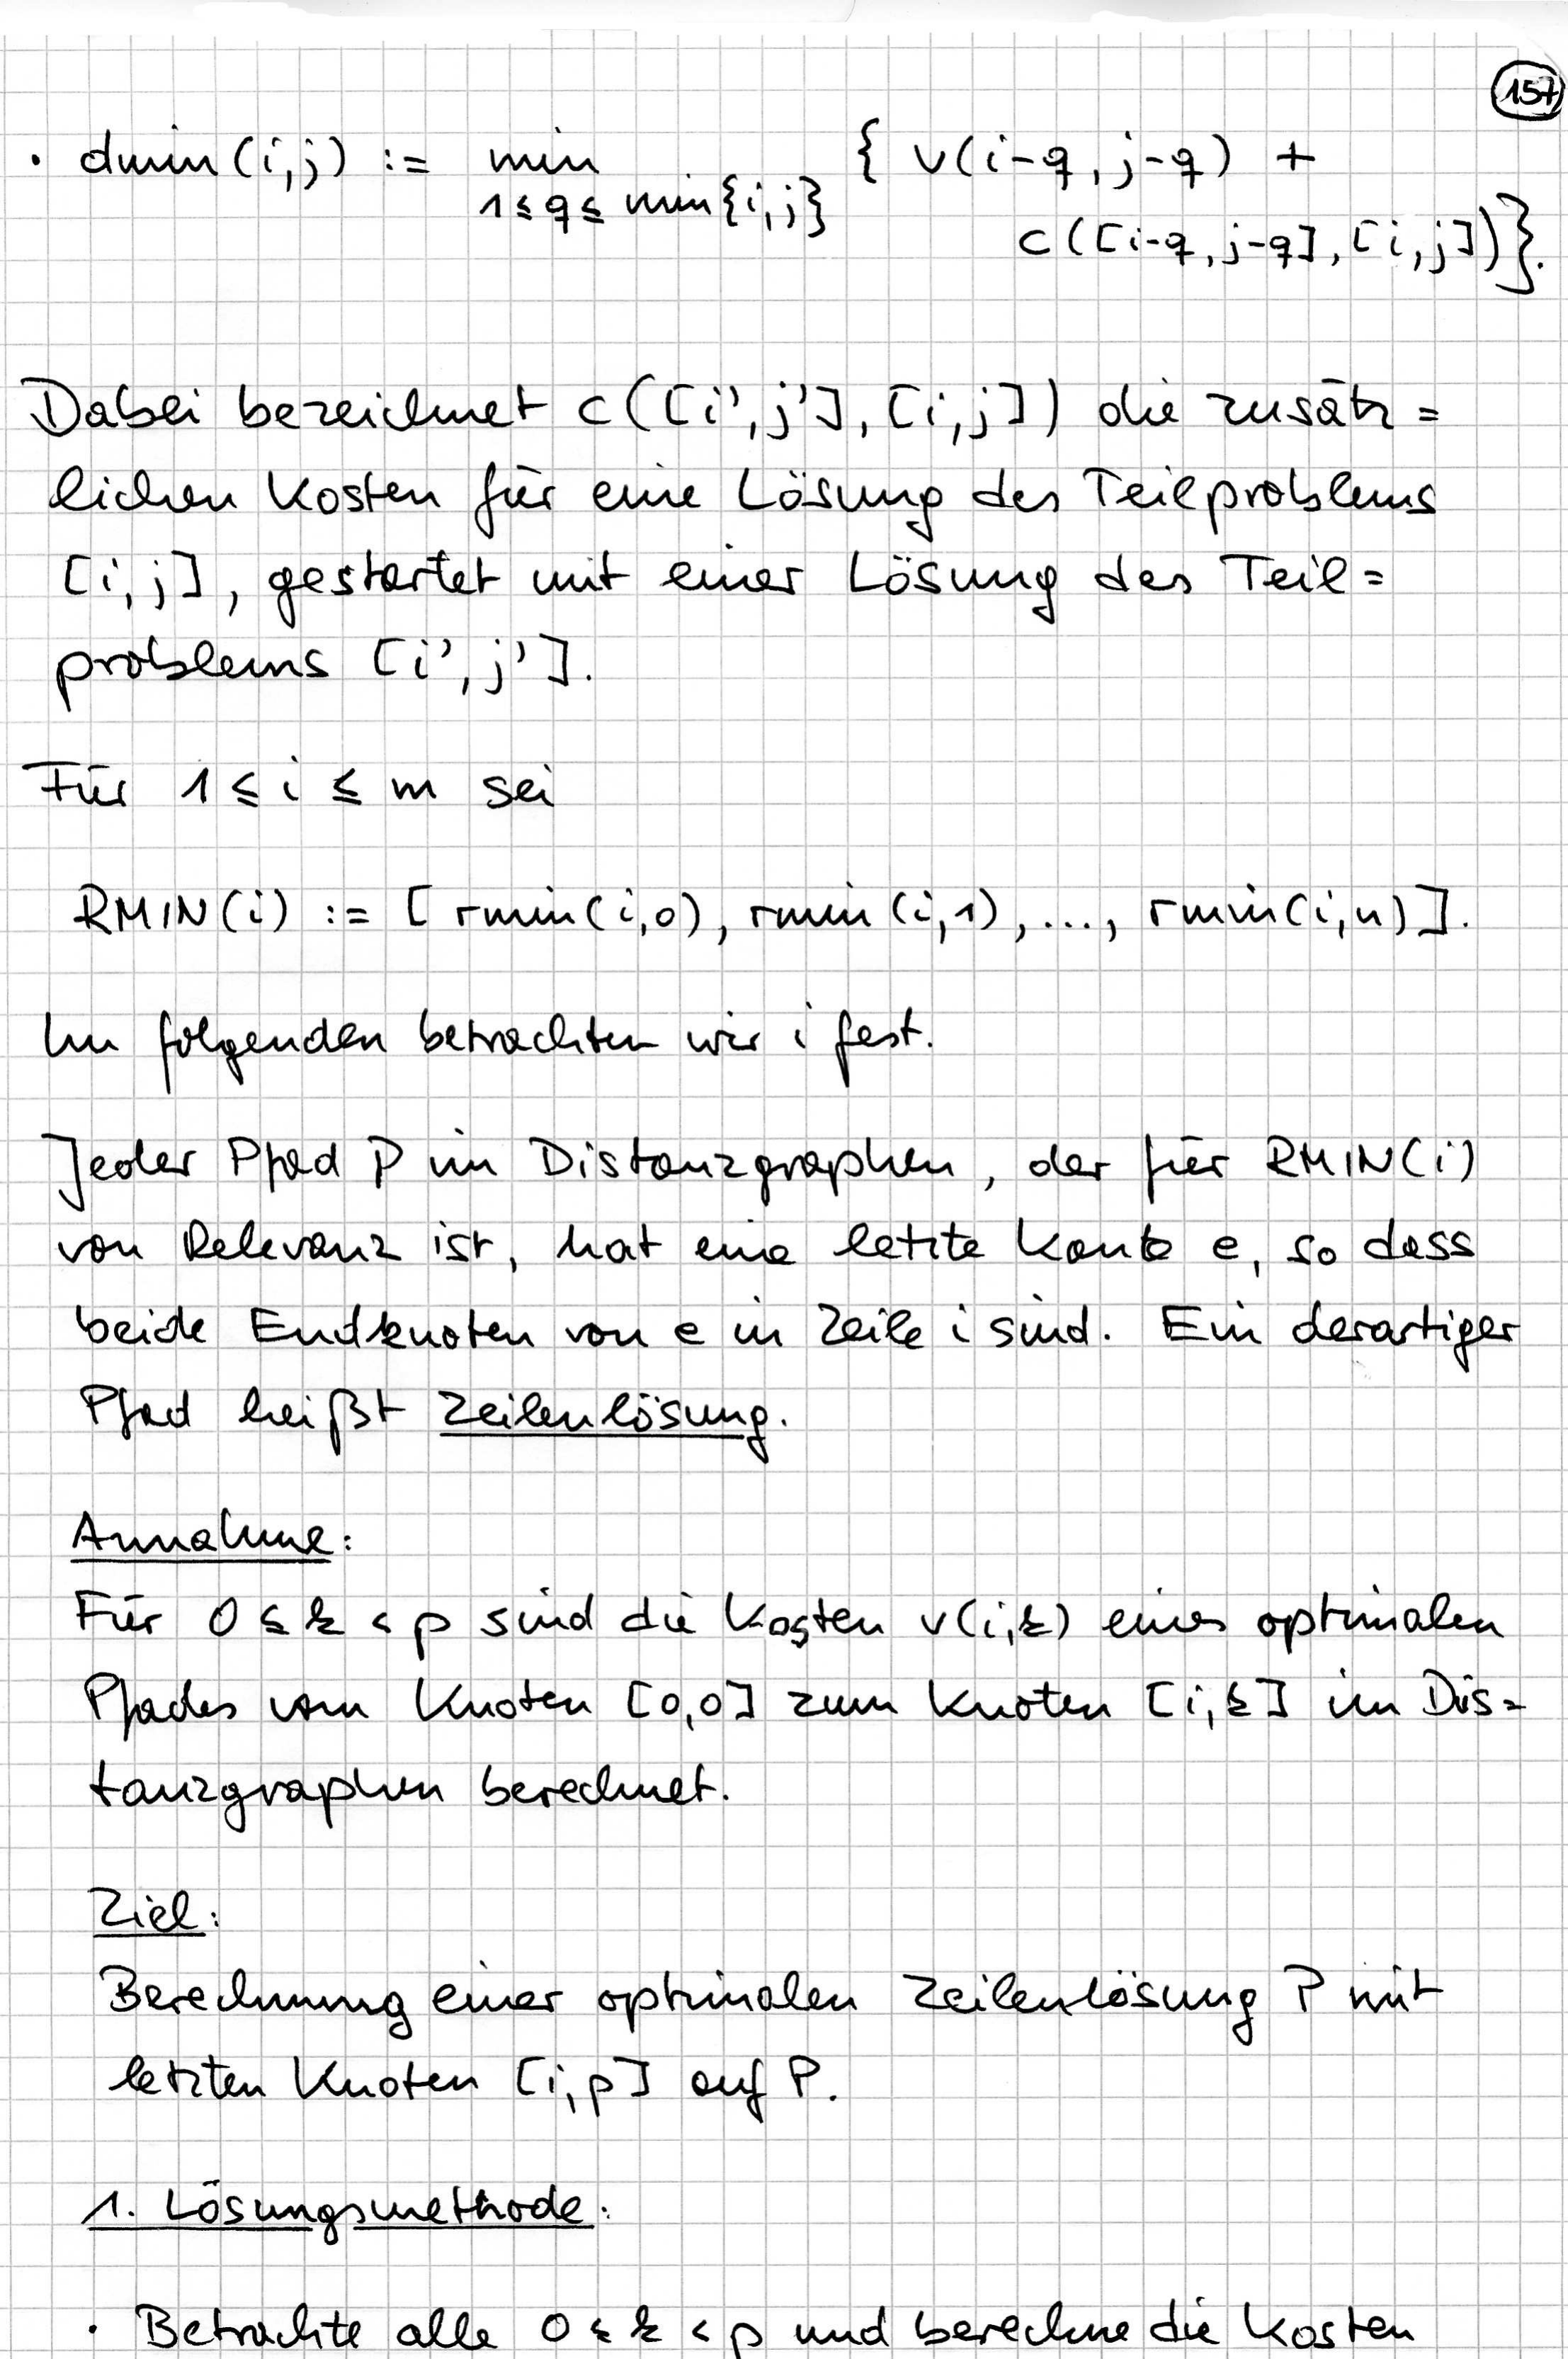 157
• dmin(i,j) := min { v(i-q, j-q) +
1≤q≤ min{i,j}
c([i-q, j-q], [i,j])}.
Dabei bezeichnet c([i',j'], [i,j]) die zusätz=
lichen Kosten für eine Lösung des Teilproblems
[i,j], gestartet mit einer Lösung des Teil=
problems [i',j'].
Für 1 ≤ i ≤ m sei
RMIN(i) := [ rmin(i,0), rmin(i,1), ..., rmin(i,n)].
Im folgenden betrachten wir i fest.
Jeder Pfad P im Distanzgraphen, der für RMIN(i)
von Relevanz ist, hat eine letzte Kante e, so dass
beide Endknoten von e in Zeile i sind. Ein derartiger
Pfad heißt Zeilenlösung.
Annahme:
Für 0 ≤ k < p sind die Kosten v(i,k) eines optimalen
Pfades vom Knoten [0,0] zum Knoten [i,k] im Dis=
tanzgraphen berechnet.
Ziel:
Berechnung einer optimalen Zeilenlösung P mit
letzten Knoten [i,p] auf P.
1. Lösungsmethode:
• Betrachte alle 0 ≤ k < p und berechne die Kosten